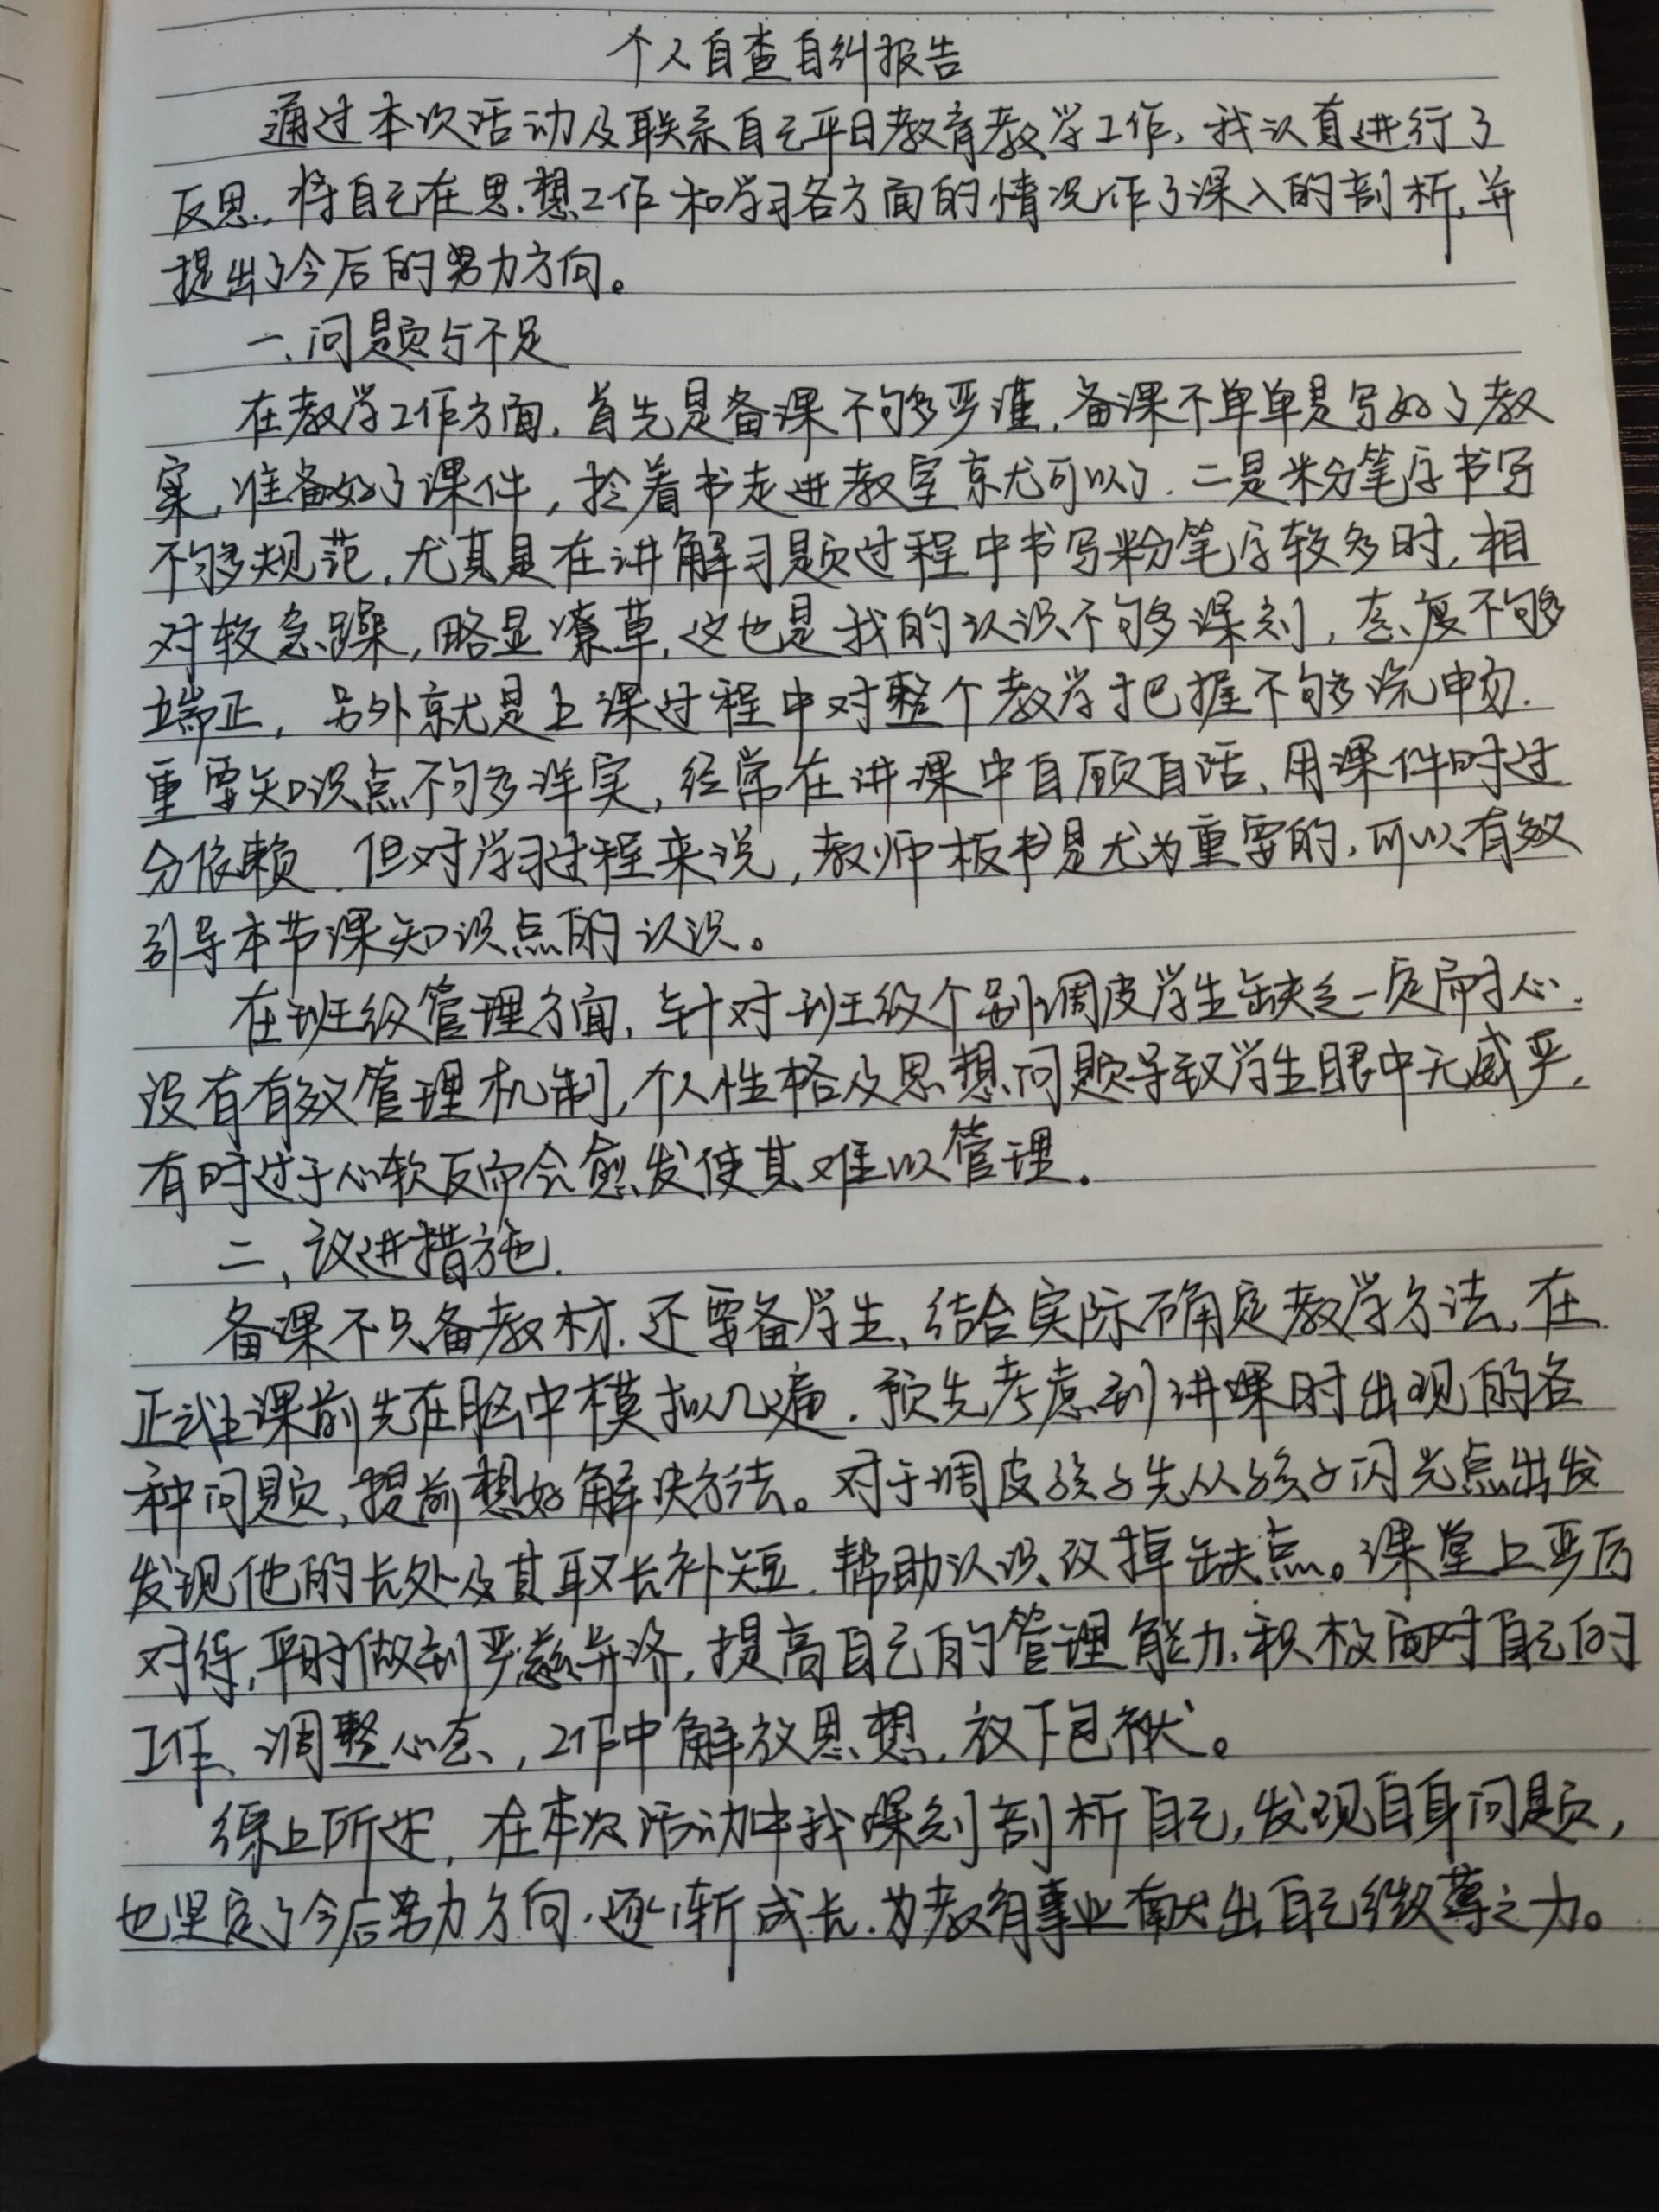 个人自查自纠报告
通过本次活动及联系自己平日教育教学工作，我认真进行了
反思，将自己在思想工作和学习各方面的情况作了深入的剖析，并
提出了今后的努力方向。
一、问题与不足
在教学工作方面，首先是备课不够严谨，备课不单单是写好了教
案，准备好了课件，拎着书走进教室就可以了，二是粉笔字书写
不够规范，尤其是在讲解习题过程中书写粉笔字较多时，相
对较急躁，略显潦草，这也是我的认识不够深刻，态度不够
端正，另外就是上课过程中对整个教学把握不够流畅，
重要知识点不够详实，经常在讲课中自顾自话，用课件时过
分依赖，但对学习过程来说，教师板书是尤为重要的，可以有效
引导本节课知识点的认识。
在班级管理方面，针对班级个别调皮学生缺乏一定耐心，
没有有效管理机制，个人性格及思想问题导致学生眼中无威严，
有时过于心软反而会愈发使其难以管理。
二、改进措施.
备课不只备教材，还要备学生，结合实际确定教学方法，在
正式上课前先在脑中模拟几遍，预先考虑到讲课时出现的各
种问题，提前想好解决方法。对于调皮孩子先从孩子闪光点出发
发现他的长处及其取长补短，帮助认识改掉缺点。课堂上严厉
对待，平时做到严慈并济，提高自己的管理能力，积极面对自己的
工作、调整心态，工作中解放思想，放下包袱。
综上所述，在本次活动中我深刻剖析自己，发现自身问题，
也坚定了今后努力方向，逐渐成长，为教育事业献出自己微薄之力。